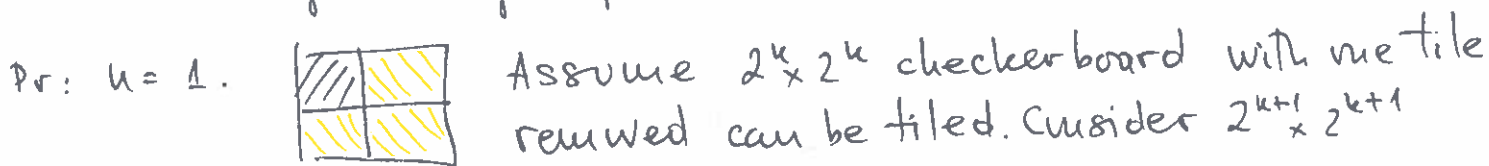 Pr: n = 1. Assume 2^n x 2^n checkerboard with one tile
removed can be tiled. Consider 2^{n+1} x 2^{n+1}